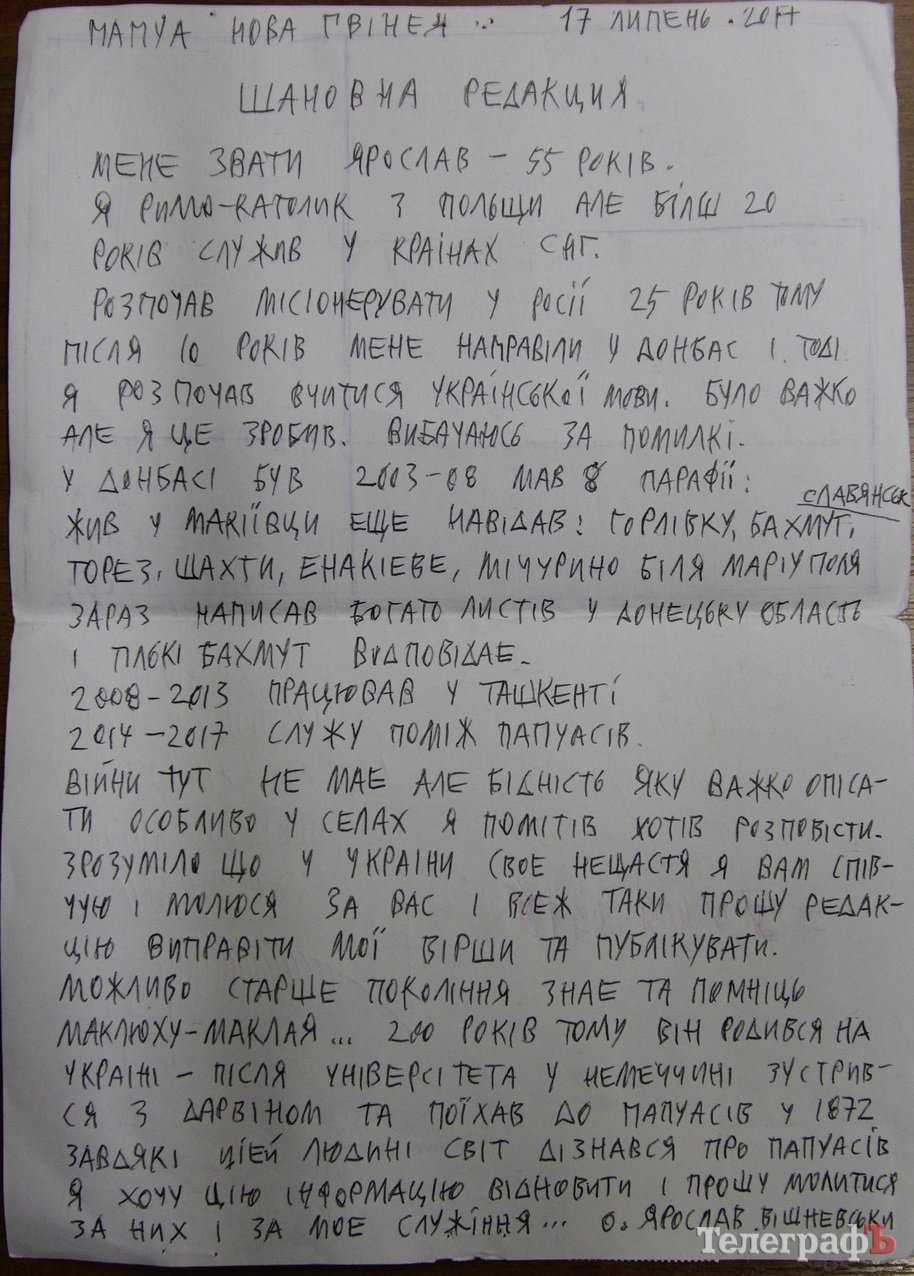 ПАПУА НОВА ГВІНЕЯ .. 17 ЛИПЕНЬ . 2017
ШАНОВНА РЕДАКЦИЯ
МЕНЕ ЗВАТИ ЯРОСЛАВ – 55 РОКІВ.
Я РИМО-КАТОЛИК З ПОЛЬЩИ АЛЕ БІЛШ 20
РОКІВ СЛУЖИВ У КРАІНАХ СНГ.
РОЗПОЧАВ МІСІОНЕРУВАТИ У РОСІЇ 25 РОКІВ ТОМУ
ПІСЛЯ 10 РОКІВ МЕНЕ НАПРАВІЛИ У ДОНБАС І ТОДІ
Я РОЗПОЧАВ ВЧИТИСЯ УКРАЇНСЬКОЇ МОВИ. БУЛО ВАЖКО
АЛЕ Я ЦЕ ЗРОБИВ. ВИБАЧАЮСЬ ЗА ПОМИЛКІ.
У ДОНБАСІ БУВ 2003-08 МАВ 8 ПАРАФІЇ:
СЛАВЯНСЬК
ЖИВ У МАКІЇВЦИ ЕЩЕ НАВІДАВ: ГОРЛІВКУ, БАХМУТ,
ТОРЕЗ, ШАХТИ, ЕНАКІЕВЕ, МІЧУРИНО БІЛЯ МАРІУПОЛЯ
ЗАРАЗ НАПИСАВ БОГАТО ЛИСТІВ У ДОНЕЦЬКУ ОБЛАСТЬ
І ТІЛЬКІ БАХМУТ ВІДПОВІДАЕ.
2008-2013 ПРАЦЮВАВ У ТАШКЕНТІ
2014-2017 СЛУЖУ ПОМІЖ ПАПУАСІВ.
ВІЙНИ ТУТ НЕ МАЕ АЛЕ БІДНІСТЬ ЯКУ ВАЖКО ОПІСА-
ТИ ОСОБЛИВО У СЕЛАХ Я ПОМІТІВ ХОТІВ РОЗПОВІСТИ.
ЗРОЗУМІЛО ЩО У УКРАЇНИ СВОЕ НЕЩАСТЯ Я ВАМ СПІВ-
ЧУЮ І МОЛЮСЯ ЗА ВАС І ВСЕЖ ТАКИ ПРОШУ РЕДАК-
ЦІЮ ВИПРАВІТИ МОЇ ВІРШИ ТА ПУБЛІКУВАТИ.
МОЖЛИВО СТАРШЕ ПОКОЛІННЯ ЗНАЕ ТА ПОМНІЦЬ
МАКЛЮХУ-МАКЛАЯ... 200 РОКІВ ТОМУ ВІН РОДИВСЯ НА
УКРАІНІ – ПІСЛЯ УНІВЕРСІТЕТА У НЕМЕЧЧИНІ ЗУСТРИВ-
СЯ З ДАРВІНОМ ТА ПОЇХАВ ДО ПАПУАСІВ У 1872
ЗАВДЯКІ ЦІЕЙ ЛЮДИНІ СВІТ ДІЗНАВСЯ ПРО ПАПУАСІВ
Я ХОЧУ ЦІЮ ІНФОРМАЦІЮ ВІДНОВИТИ І ПРОШУ МОЛИТИСЯ
ЗА НИХ І ЗА МОЕ СЛУЖІННЯ... О. ЯРОСЛАВ ВІШНЕВСЬКИ
ТелеграфЪ